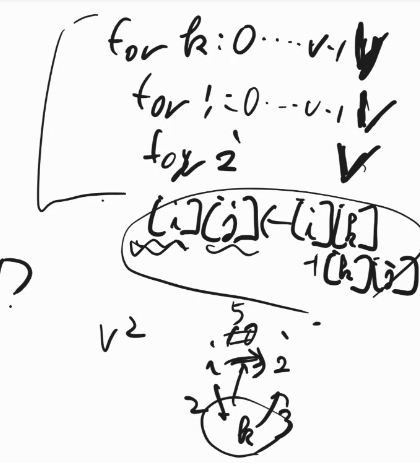 for k: 0 ····· v-1 V
for i: 0 ···· v-1 V
for j V
[i][j] ← [i][k]
+[k][j]
V²
5
10
i → j
2 3
k